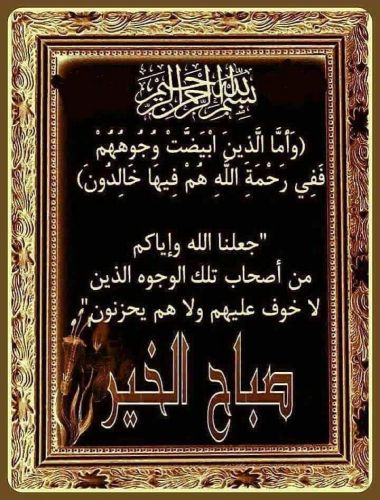 بسم الله الرحمن الرحيم
(وَأَمَّا الَّذِينَ ابْيَضَّتْ وُجُوهُهُمْ
فَفِي رَحْمَةِ اللَّهِ هُمْ فِيهَا خَالِدُونَ)
"جعلنا الله وإياكم
من أصحاب تلك الوجوه الذين
لا خوف عليهم ولا هم يحزنون"
صباح الخير